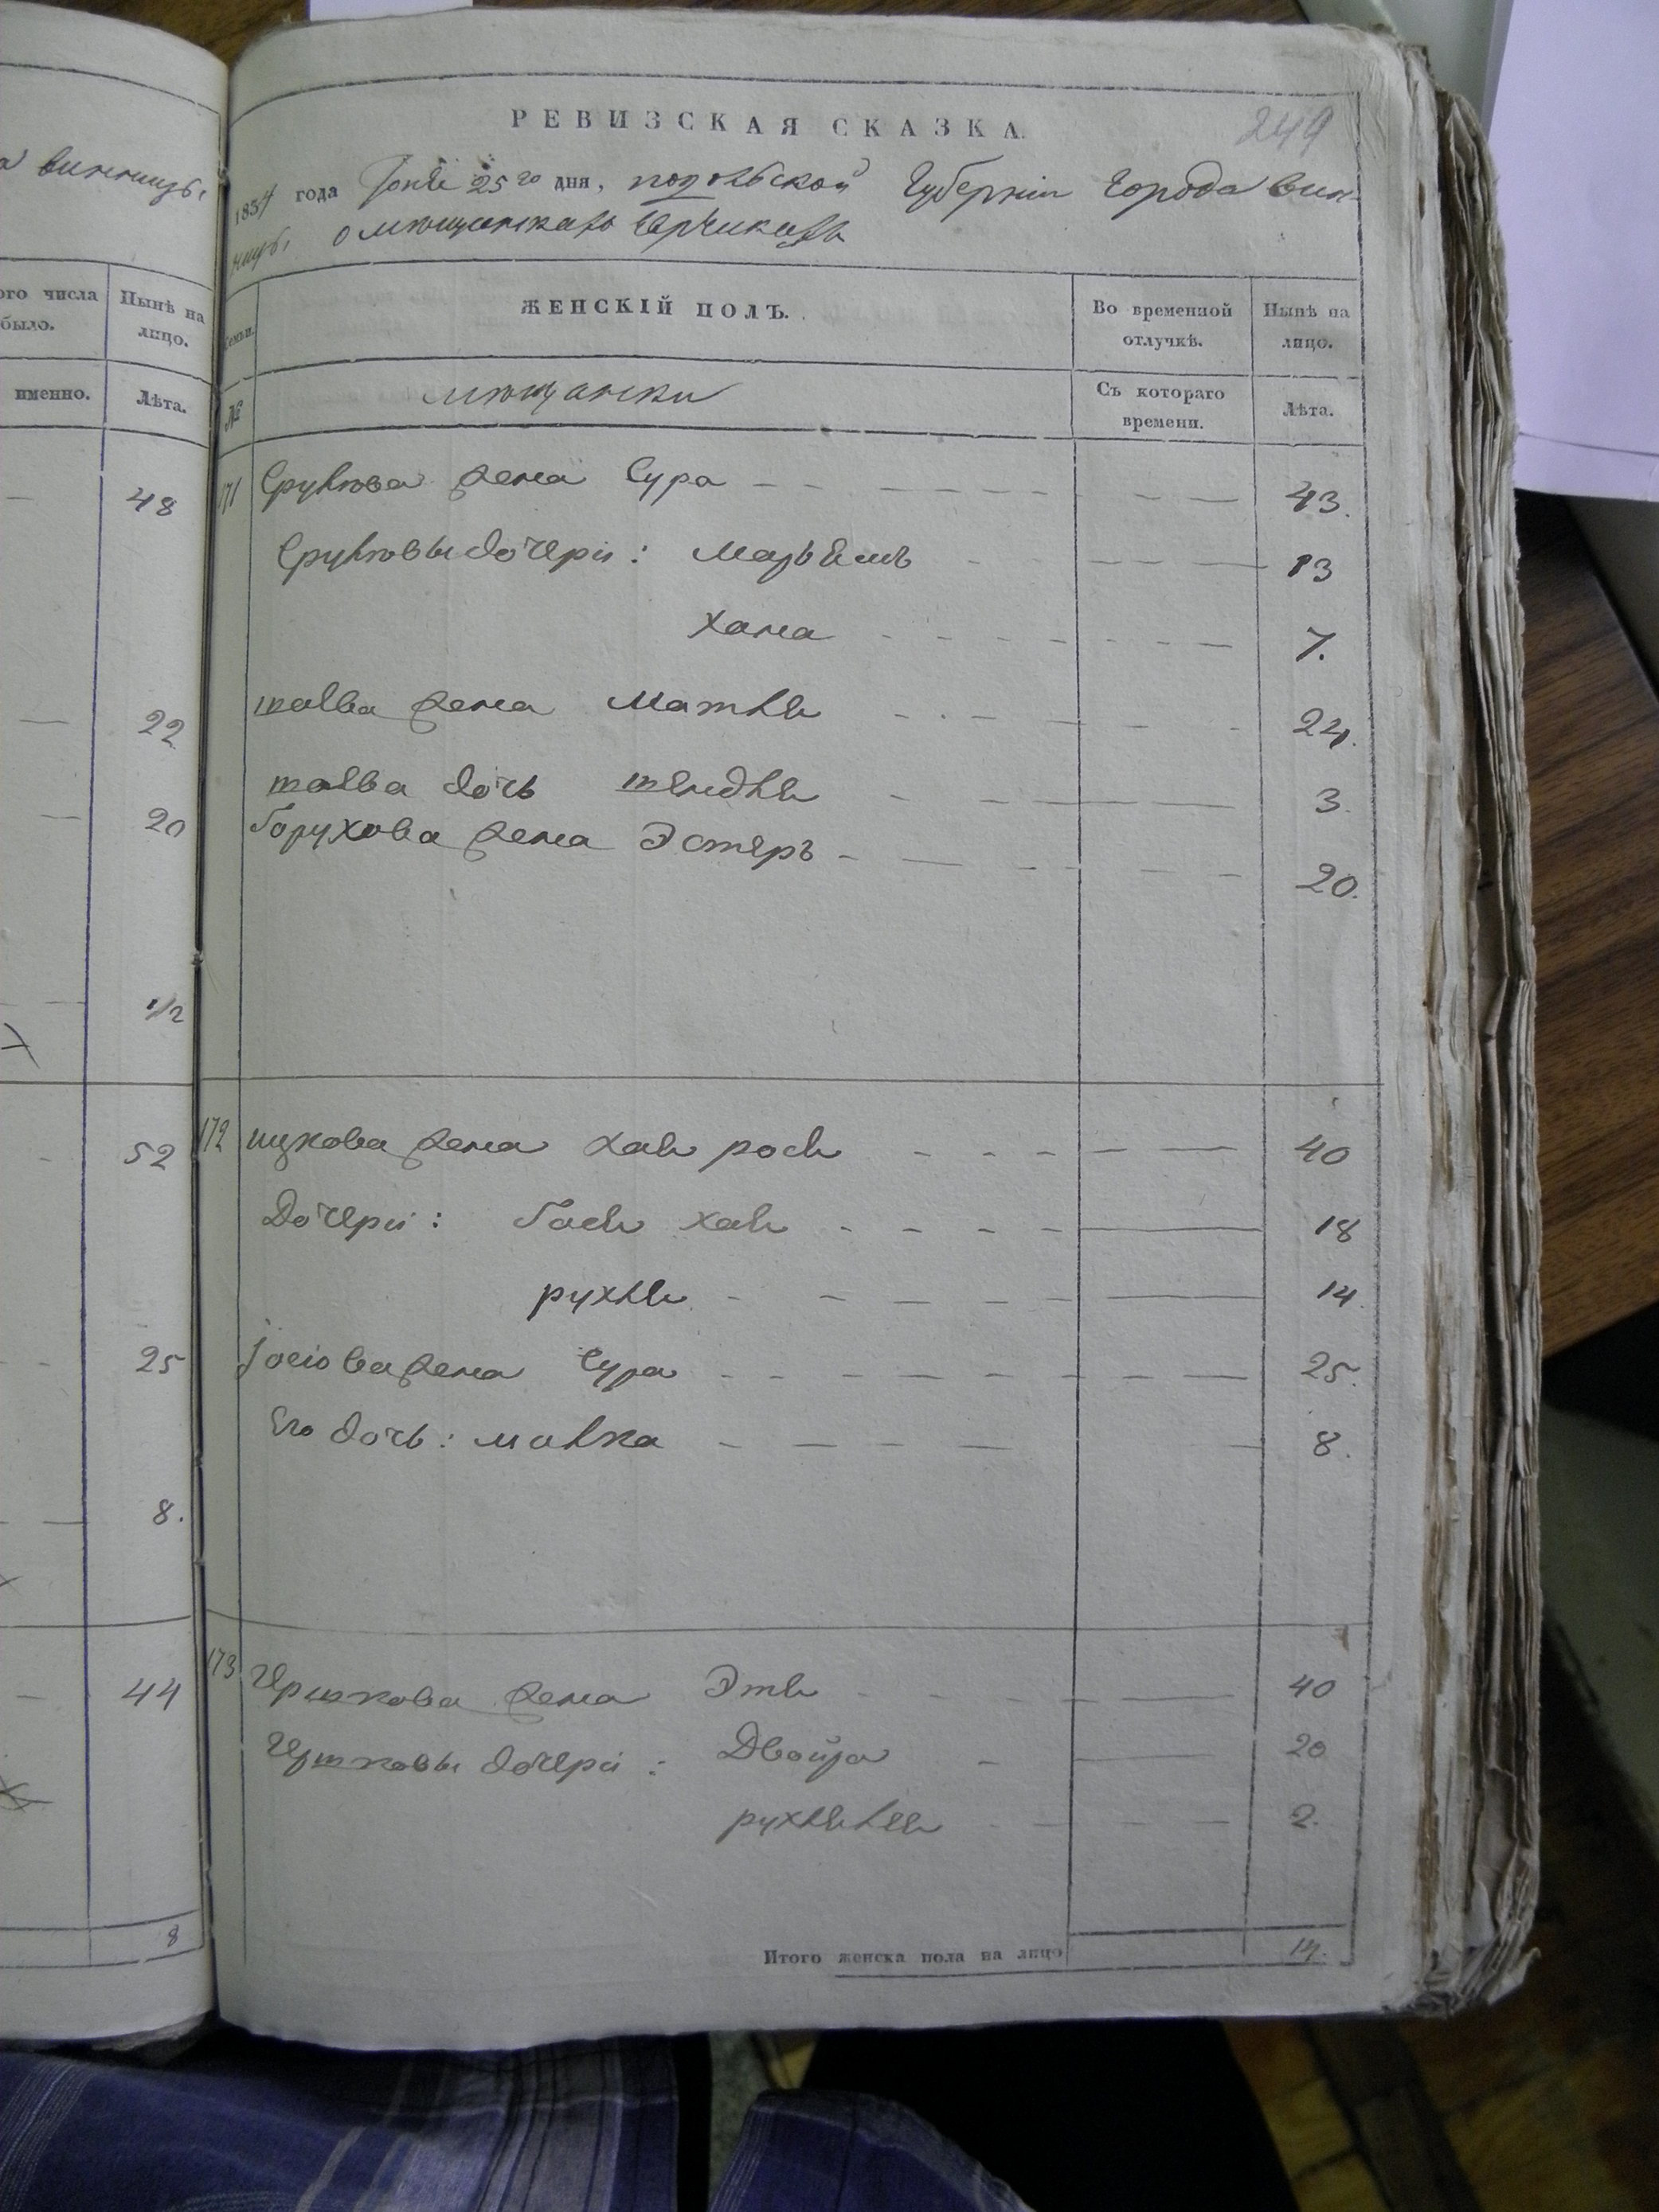 а винницы
ого числа
было.
Нынѣ на
лицо.
именно.
Лѣта.
48
22
20
1/2
52
25
8.
44
8
249
РЕВИЗСКАЯ СКАЗКА.
1854 года 25го дня, подольской Губерніи Города Вин-
ницы о мѣщанкахъ Еврейкахъ
Семьи.
ЖЕНСКІЙ ПОЛЪ.
Во временной
отлучкѣ.
Нынѣ на
лицо.
№
мѣщанки
Съ котораго
времени.
Лѣта.
171 Срулова жена Сура 43.
Сруловы дочери: Марьемъ 13
Хана 7.
жена 24.
дочь 3.
Борухова жена Эстеръ 20.
172 ицкова жена хая рося 40
Дочери: Бася хая 18
рухля 14
Іосіова жена Сура 25.
Его дочь: малка 8.
173 Гершкова жена Этя 40
Гершковы дочери: Двойра 20
2.
Итого женска пола на лицо 14.